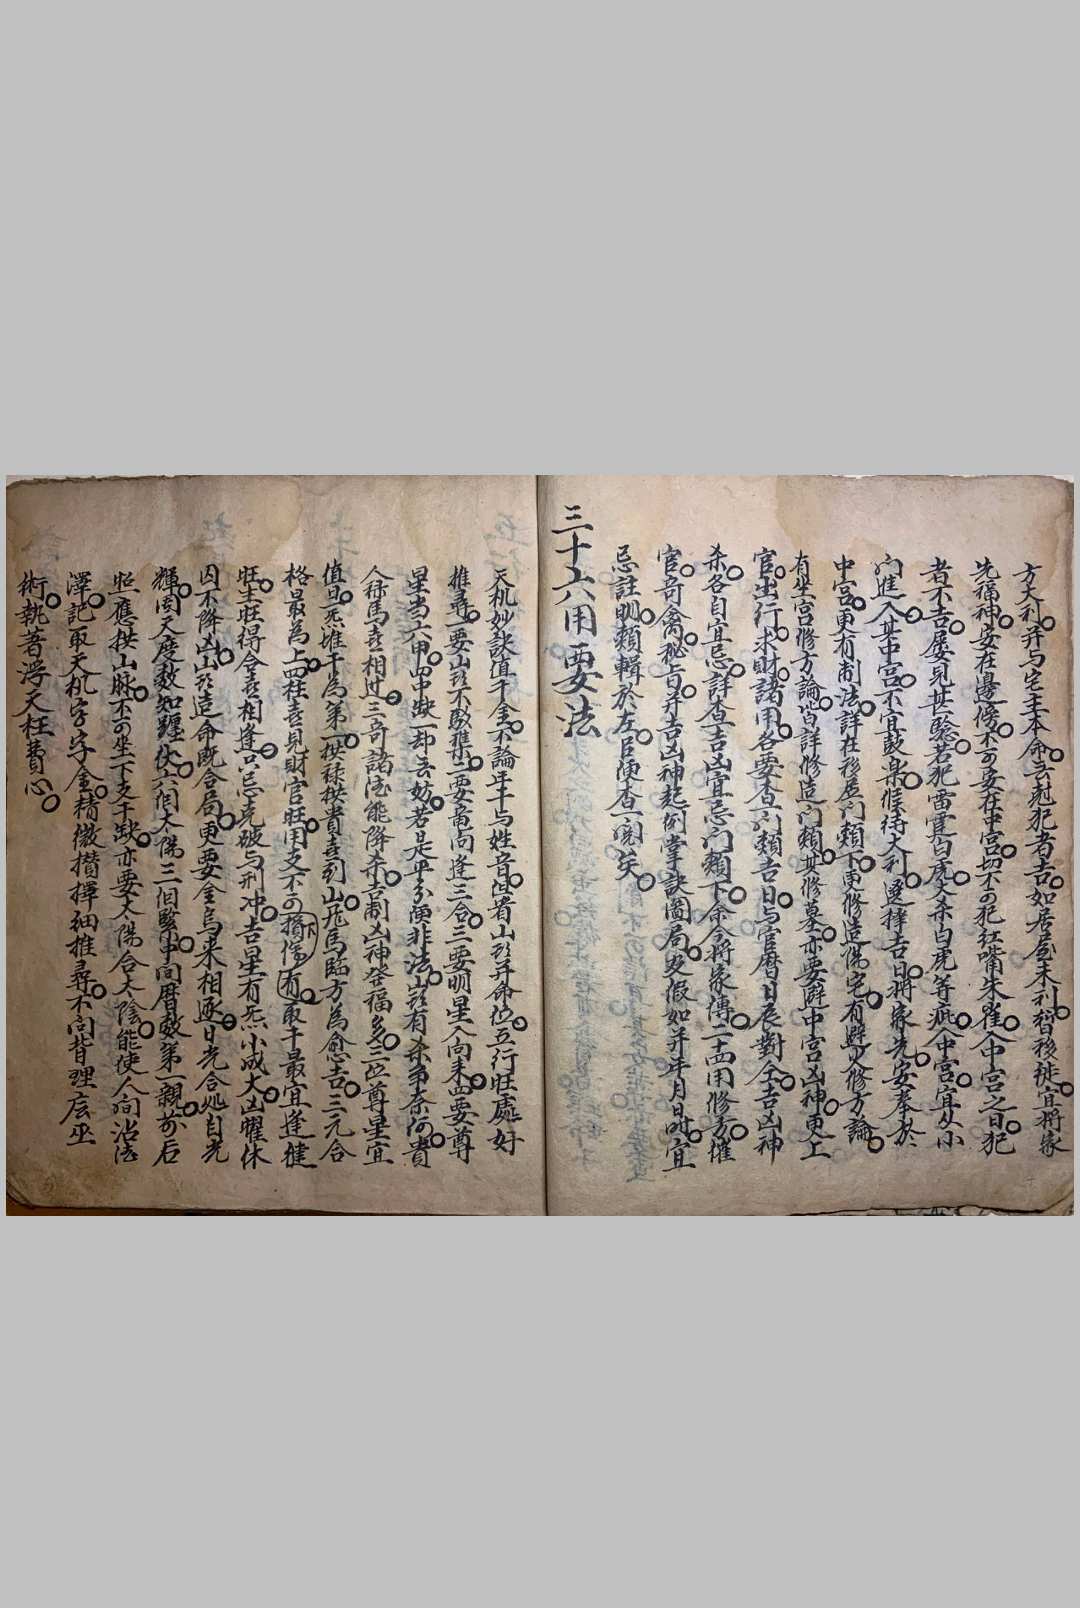 方大利。并与宅主本命。无剋犯者吉。如居屋未利。暂移徙。宜將家
先福神。安在邊傍。不可安在中宫。切不可犯红嘴朱雀。入中宫之日。犯
者不吉。屡見甚驗。若犯雷霆白虎。大杀白虎等疵。入中宫。宜从小
门進入。其中宫。不宜鼓楽。候待大利。選擇吉日。將家先安奉於
中宫。更有制法。詳在移居门類下。更修造陽宅。有避火修方論。
有坐宫修方論。皆詳修造门類。其修墓。亦要避中宫凶神。更上
官。出行。求財。諸用。各要查门類。吉日。与官曆日辰對合。吉凶神
杀。各自宜忌。詳查吉凶宜忌门類下。余今將家傳二十四用。修方。催
官。奇禽。秘旨。并吉凶神起例掌訣。圖局。及假如。并年月日时。宜
忌註明。類輯於左。臣便查閲矣。
三十六用要法
天机妙訣值千金。不論年干与姓音。但看山頭并命位。五行旺處好
推尋。一要山頭不駁雜。二要畜向逢三合。三要明星入向来。四要尊
星当六甲。四中缺一却云妨。若是平分便非法。山頭有杀争奈何。貴
人祿馬喜相过。三奇諸德能降杀。吉制凶神發福多。二位尊星宜
值旦。炁堆干為第一。拱禄拱貴喜到山。飛馬臨方為愈吉。三元合
格最為上。四柱喜見財官旺。用支不可損傷。取干最宜逢健
旺。生旺得合喜相逢。只忌克破与刑冲。吉星有炁小成大。凶曜休
囚不降凶。山頭造命既合局。更要金烏来相逐。日光合処自光
輝。周天度数知躔伏。六個太陽三個緊。中间曆数第一親。前后
照應拱山脉。不可坐下支干缺。亦要太陽合太陰。能使人间沾德
澤。記取天机字字金。精微攅擇細推尋。不向背理庶巫
術。執著浮天枉費心。